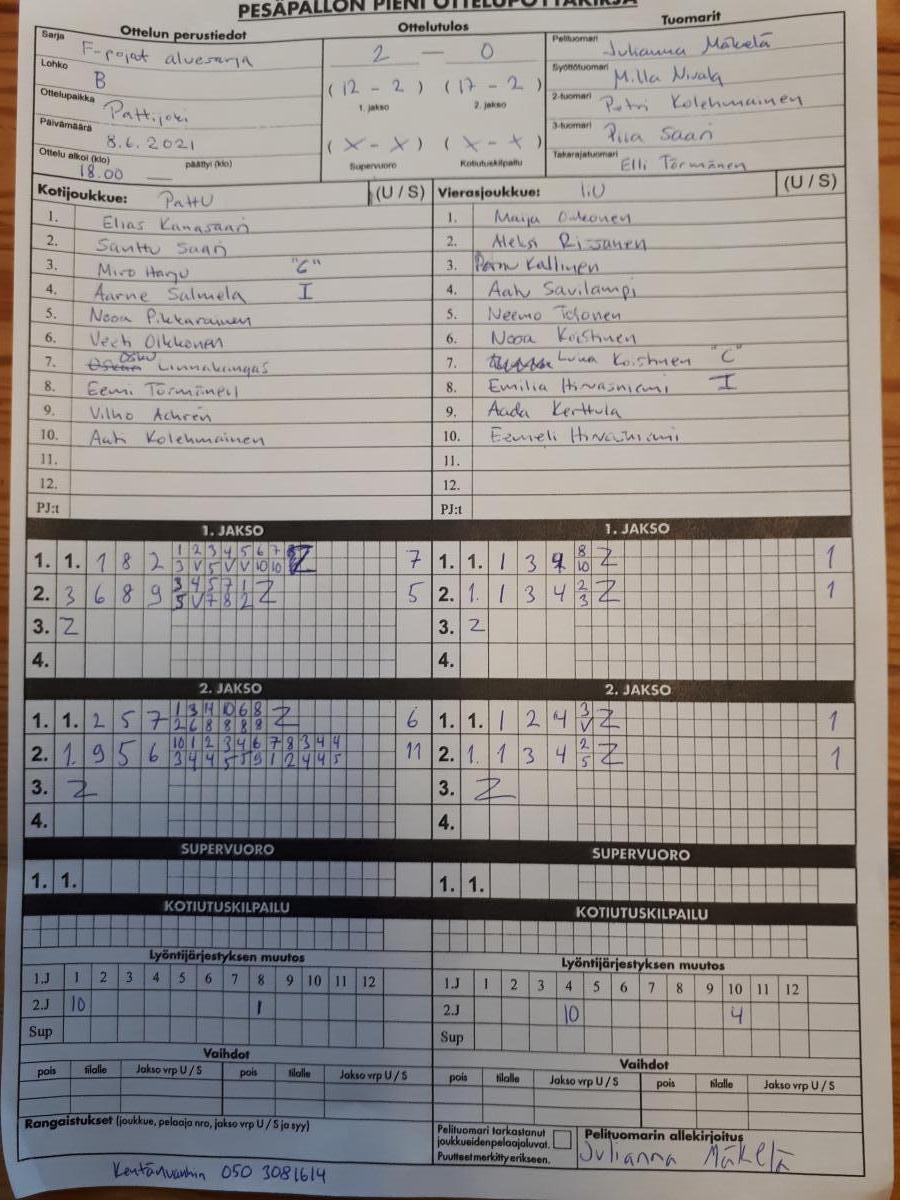 PESÄPALLON PIENI OTTELUPÖYTÄKIRJA
Ottelun perustiedot
Sarja F-pojat aluesarja
Lohko B
Ottelupaikka Pattijoki
Päivämäärä 8.6.2021
Ottelu alkoi (klo) päättyi (klo)
18.00 —
Ottelutulos
2 — 0
(12 - 2) (17 - 2)
1. jakso 2. jakso
(X - X) (X - X)
Supervuoro Kotiutuskilpailu
Tuomarit
Pelituomari Julianna Mäkelä
Syöttötuomari Milla Nivala
2-tuomari Petri Kolehmainen
3-tuomari Piia Saari
Takarajatuomari Elli Törmänen
Kotijoukkue: PattU (U / S)
1. Elias Kanasaari
2. Santtu Saari
3. Miro Harju "C"
4. Aarne Salmela I
5. Nooa Pikkarainen
6. Veeti Oikkonen
7. Osku Linnakangas
8. Eemi Törmänen
9. Vilho Achrén
10. Aati Kolehmainen
11.
12.
PJ:t
Vierasjoukkue: (U / S)
1. Maija
2. Aleksi Rissanen
3. Kallinen
4. Aatu Savilampi
5. Neemo
6. Nooa Koistinen
7. Luka Koistinen "C"
8. Emilia Hirvasniemi I
9. Aada Kerttula
10. Eemeli Hirvasniemi
11.
12.
PJ:t
1. JAKSO
1. 1. 1 8 2 1 2 3 4 5 6 7 Z 7
3 V 5 V V 10 10
2. 3 6 8 9 3 4 5 7 1 Z 5
5 V 7 8 2
3. Z
4.
1. JAKSO
1. 1. 1 3 8 Z 1
10
2. 1. 1 3 4 2 Z 1
3
3. Z
4.
2. JAKSO
1. 1. 2 5 7 1 3 4 10 6 8 Z 6
2 6 8 8 8 8
2. 1. 9 5 6 10 1 2 3 4 6 7 8 3 4 4 11
3 4 4 5 5 9 1 2 4 4 5
3. Z
4.
2. JAKSO
1. 1. 1 2 4 3 Z 1
V
2. 1. 1 3 4 2 Z 1
5
3. Z
4.
SUPERVUORO
1. 1.
SUPERVUORO
1. 1.
KOTIUTUSKILPAILU
KOTIUTUSKILPAILU
Lyöntijärjestyksen muutos
1.J 1 2 3 4 5 6 7 8 9 10 11 12
2.J 10 1
Sup
Lyöntijärjestyksen muutos
1.J 1 2 3 4 5 6 7 8 9 10 11 12
2.J 10 4
Sup
Vaihdot
pois tilalle Jakso vrp U / S pois tilalle Jakso vrp U / S
Vaihdot
pois tilalle Jakso vrp U / S pois tilalle Jakso vrp U / S
Rangaistukset (joukkue, pelaaja nro, jakso vrp U / S ja syy)
Pelituomari tarkastanut
joukkueiden pelaajaluvat.
Puutteet merkitty erikseen.
Pelituomarin allekirjoitus
Julianna Mäkelä
Kentänvanhin 050 3081614